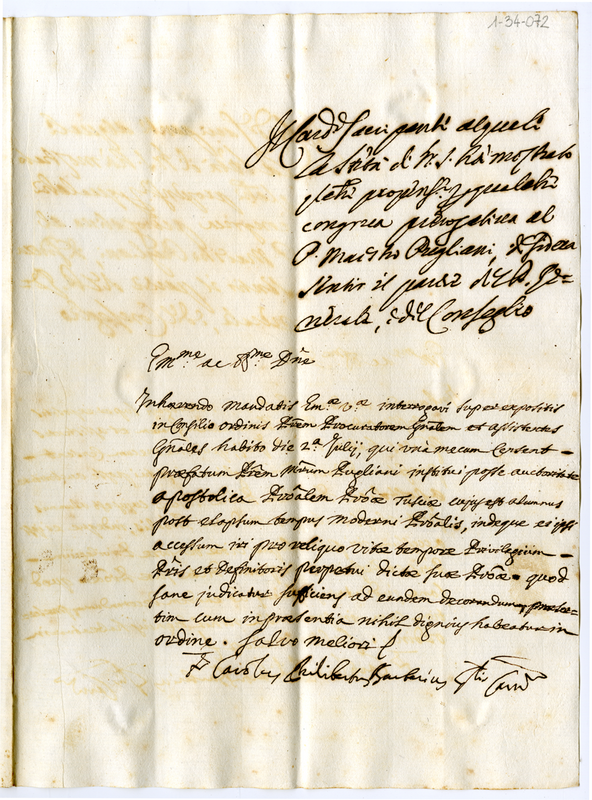 1-34-072
Il Card. Sacripanti al quale
la Stà di N. S. ha mostrato
propens. qualche
congrua prerogativa al
P. Maestro Pugliani, desidera
sentir il parere del P. Ge-
nerale, e del Conseglio
Emme ac Rme Dne
Inhaerendo mandatis Emae Vae interrogavi super expositis
in Consilio ordinis Prem Procuratorem Gnalem et assistentes
Gnales habito die 2a Julij, qui una mecum censent
praefatum Prem Mrum Puglianum institui posse auctoritate
apostolica Provalem Provae Tusciae cujus est alumnus
post elapsum tempus moderni Provalis, indeque ei
accessum iri pro reliquo vitae tempore Privilegium
Pris et definitoris perpetui dictae suae Provae quod
sane judicatur sufficiens ad eundem decorandum, praeser-
tim cum in praesentia nihil dignius habeatur in
ordine. Salvo meliori
Fr Carolus Philibertus Barberius